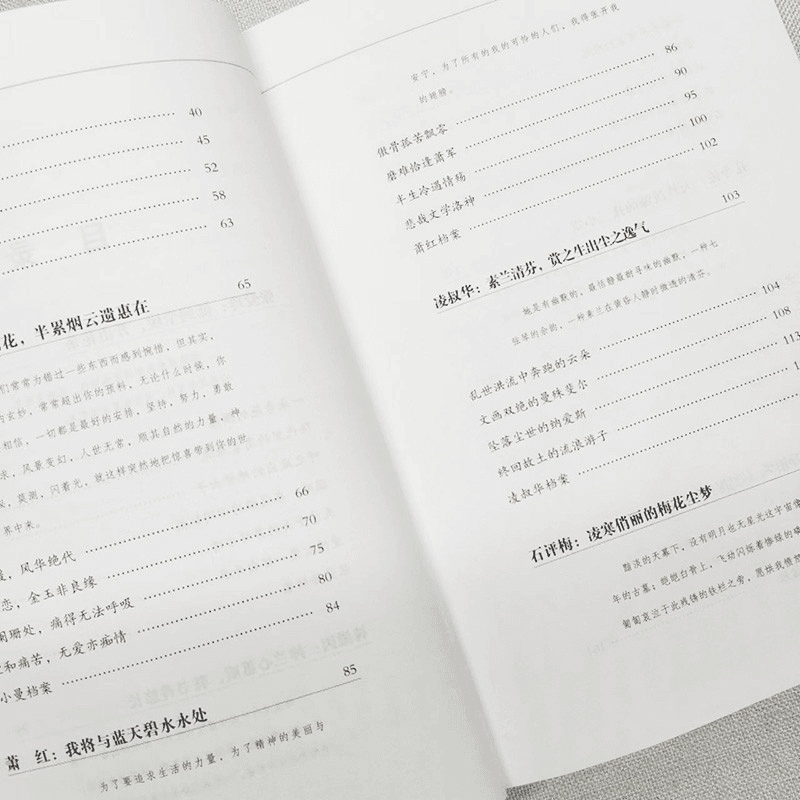 40
45
52
58
63
65
花，半累烟云遗惠在
们常常为错过一些东西而感到惋惜，但其实，
的玄妙，常常超出你的预料，无论什么时候，你
相信，一切都是最好的安排，坚持，努力，勇敢
求，风景变幻，人世无常，顺其自然的力量，神
莫测，闪着光，就这样突然地把惊喜带到你的世
界中来。
，风华绝代 66
恋，金玉非良缘 70
阑珊处，痛得无法呼吸 75
和痛苦，无爱亦痴情 80
小曼档案 84
85
萧 红：我将与蓝天碧水永处
为了要追求生活的力量，为了精神的美丽与
安宁，为了所有的我的可怜的人们，我得张开我
的翅膀。
傲骨孤苦飘零 86
磨难恰逢萧军 90
半生冷遇情殇 95
悲哉文学洛神 100
萧红档案 102
103
凌叔华：素兰清芬，赏之生出尘之逸气
她是有幽默的，最恬静最耐寻味的幽默，一种七
弦琴的余韵，一种素兰在黄昏人静时微透的清芬。
乱世洪流中奔跑的云朵 104
文画双绝的曼殊斐尔 108
坠落尘世的纳爱斯 113
终回故土的流浪游子
凌叔华档案
石评梅：凌寒俏丽的梅花尘梦
黯淡的天幕下，没有明月也无星光这宇宙像
年的古墓；皑皑白骨上，飞动闪烁着惨绿的磷
匍匐哀泣于此残锈的铁栏之旁，愿烘我愤怒